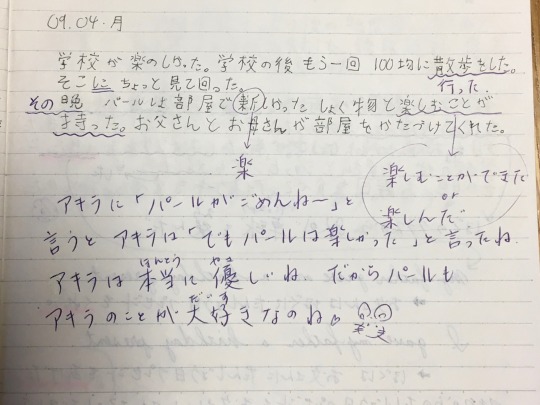 09.04.月
学校が楽のしかった。学校の後もう一回 100均に散歩をした。
行った
そこに ちょっと見て回った。
その晩 パールは部屋で新しかったしょく物と楽しむことが
持った。お父さんとお母さんが部屋をかたづけてくれた。
楽
楽しむことができた
or
楽しんだ
アキラに「パールがごめんね〜」と
言うとアキラは「でもパールは楽しかった」と言ったね.
アキラは本当に優しいね. だからパールも
ほんとう やさ
アキラのことが大好きなのね
だいす